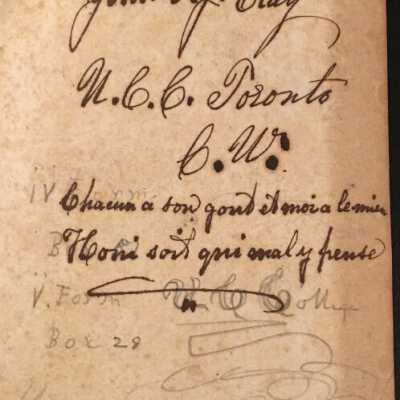 U.C.C. Toronto
C.W.
IV Form
Chacun a son gout et moi a le mien
B
Honi soit qui mal y pense
V. Form U C College
Box 28